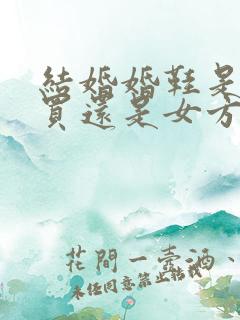 結婚婚鞋是
買還是女方
花間一壺酒、
未經同意禁止轉載